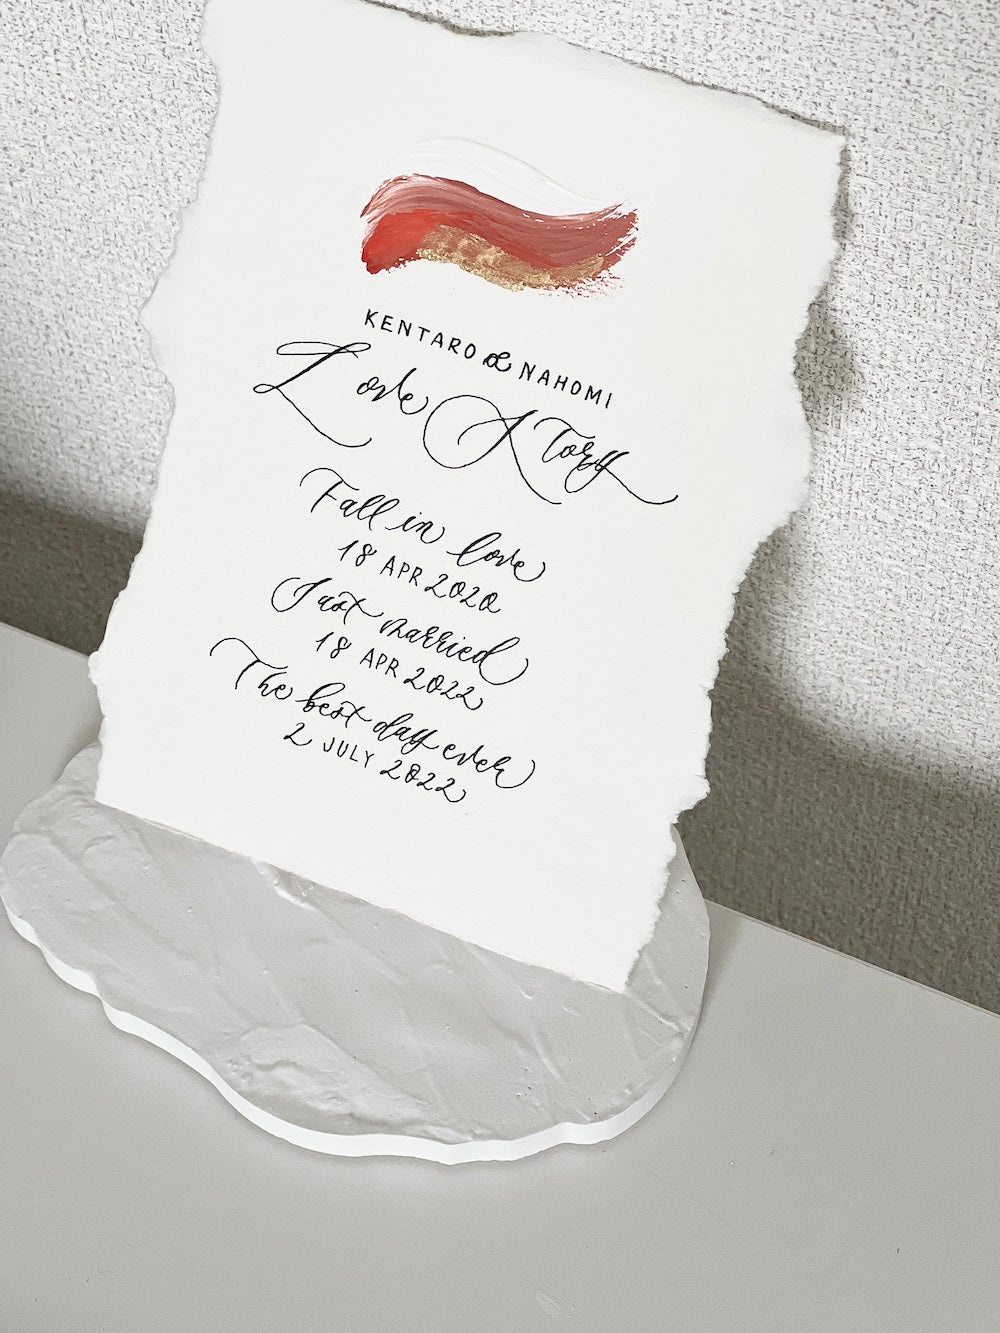 KENTARO & NAHOMI
Love Story
Fall in love
18 APR 2020
Just married
18 APR 2022
The best day ever
2 JULY 2022